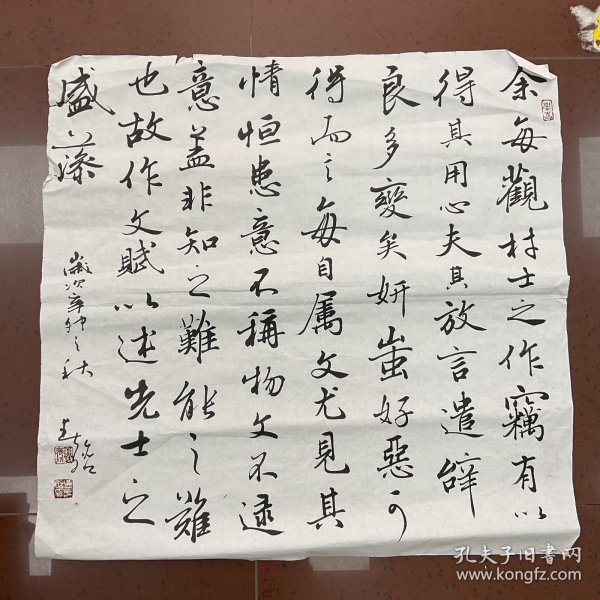 余每觀材士之作竊有以
得其用心夫其放言遣辤
良多變矣妍蚩好惡可
得而言每自属文尤見其
情恒患意不稱物文不逮
意盖非知之難能之難
也故作文賦以述先士之
盛藻
歲次辛卯之秋
孔夫子旧书网
www.kongfz.com